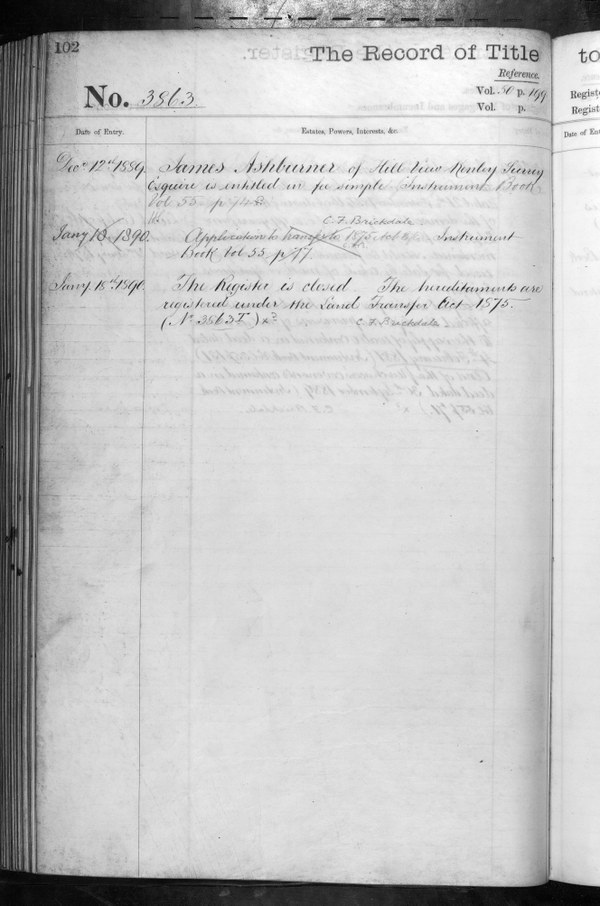 102
The Record of Title
Reference.
No. 3863
Vol. 50 p. 199
Vol. p.
Date of Entry.
Estates, Powers, Interests, &c.
Decr 12th 1889. James Ashburner of Hill View Surrey
Esquire is entitled in fee simple Instrument Book
Vol 55 p
C. F. Brickdale
Jany 1890. Application to transfer to 1875 Instrument
Book Vol 55 p 77
Jany 18th 1890. The Register is closed The hereditaments are
registered under the Land Transfer Act 1875.
(No 3863 )
C. F. Brickdale
to
Registe
Registe
Date of Ent